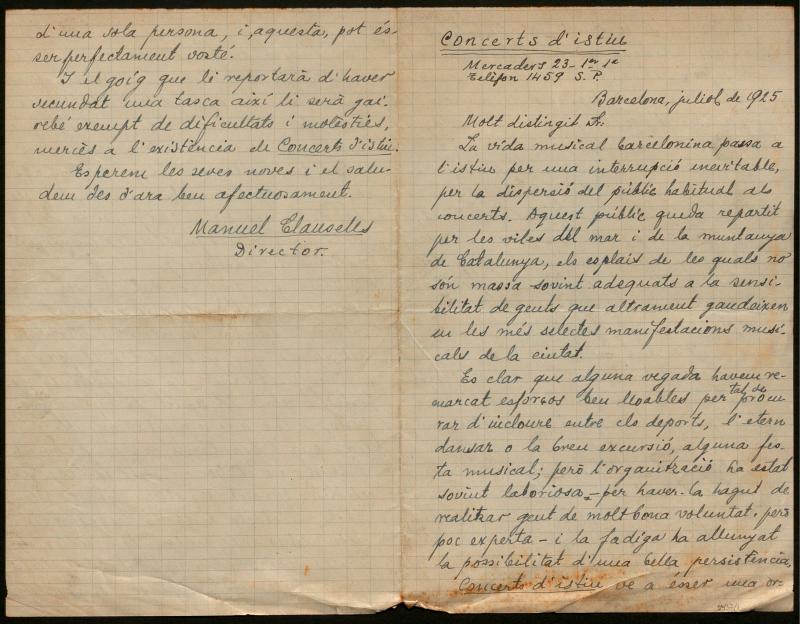 d'una sola persona, i, aquesta, pot és-
ser perfectament vosté.
I el goig que li reportarà d'haver
secundat una tasca així li serà gai-
rebé exempt de dificultats i molèsties,
mercès a l'existència de Concerts d'istiu.
Esperem les seves noves i el salu-
dem des d'ara ben afectuosament.
Manuel Clausells
Director.
Concerts d'istiu
Mercaders 23- 1er 1a
Telèfon 1459 S.P.
Barcelona, juliol de 1925
Molt distingit Sr.
La vida musical barcelonina passa a
l'istiu per una interrupció inevitable,
per la dispersió del públic habitual als
concerts. Aquest públic queda repartit
per les viles del mar i de la muntanya
de Catalunya, els esplais de les quals no
són massa sovint adequats a la sensi-
bilitat de gents que altrament gaudeixen
en les més selectes manifestacions musi-
cals de la ciutat.
Es clar que alguna vegada havem re-
marcat esforços ben lloables per tal de procu
rar d'incloure entre els deports, l'etern
dansar o la breu excursió, alguna fes-
ta musical; però l'organització ha estat
sovint laboriosa, -per haver-la hagut de
realitzar gent de molt bona voluntat, però
poc experta - i la fadiga ha allunyat
la possibilitat d'una bella persistència.
Concerts d'istiu ve a ésser una or-